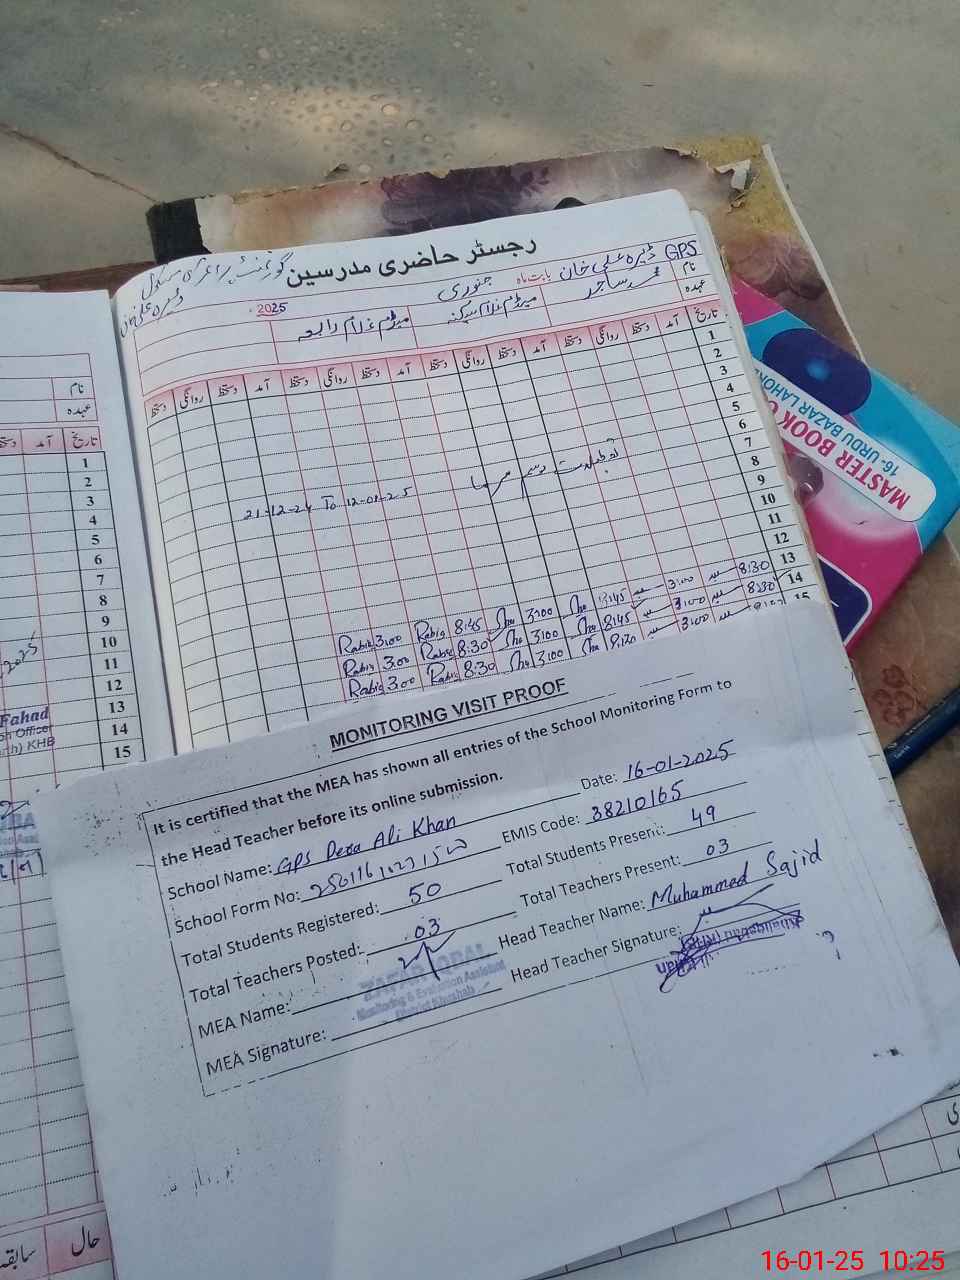 رجسٹر حاضری مدرسین
گورنمنٹ پرائمری سکول
ڈیرہ علی خان
GPS ڈیرہ علی خان بابت ماہ جنوری 2025
نام
عہدہ
محمد ساجد
میڈم غلام سکینہ
میڈم غلام رابعہ
تاریخ آمد دستخط روانگی دستخط آمد دستخط روانگی دستخط آمد دستخط روانگی دستخط آمد دستخط روانگی دستخط
1
2
3
4
5
6
7
8
9
10
11
12
13
14
15
تعطیلات موسم سرما
21-12-24 To 12-01-25
Rabia 3:00 Rabia 8:45 3:00 8:45 3:00 8:30
Rabia 3:00 Rabia 8:30 3:00 8:45 3:00 8:30
Rabia 3:00 Rabia 8:30 3:00 8:20 3:00
نام
عہدہ
تاریخ آمد
1
2
3
4
5
6
7
8
9
10
11
12
13
14
15
2025
Fahad
Officer
KHB
حال
سابقہ
MONITORING VISIT PROOF
It is certified that the MEA has shown all entries of the School Monitoring Form to
the Head Teacher before its online submission.
Date: 16-01-2025
School Name: GPS Dera Ali Khan
EMIS Code: 38210165
School Form No:
Total Students Present: 49
Total Students Registered: 50
Total Teachers Present: 03
Total Teachers Posted: 03
Head Teacher Name: Muhammed Sajid
MEA Name:
Head Teacher Signature:
MEA Signature:
ZAFAR IQBAL
Monitoring & Evaluation Assistant
District Khushab
MASTER BOOK
16- URDU BAZAR LAHORE
16-01-25 10:25